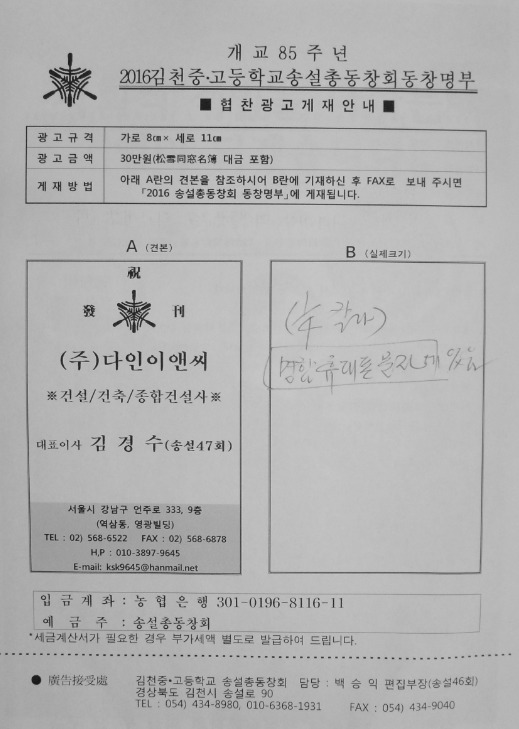 개교 85주년
2016김천중·고등학교송설총동창회동창명부
■ 협찬광고게재안내 ■
광고규격 가로 8㎝× 세로 11㎝
광고금액 30만원(松雪同窓名簿 대금 포함)
게재방법 아래 A란의 견본을 참조하시어 B란에 기재하신 후 FAX로 보내 주시면
「2016 송설총동창회 동창명부」에 게재됩니다.
A (견본)
祝
發 刊
(주)다인이앤씨
※건설/건축/종합건설사※
대표이사 김경수(송설47회)
서울시 강남구 언주로 333, 9층
(역삼동, 영광빌딩)
TEL : 02) 568-6522 FAX : 02) 568-6878
H,P : 010-3897-9645
E-mail: ksk9645@hanmail.net
B (실제크기)
명함 휴대폰
입금계좌 : 농협은행 301-0196-8116-11
예금주 : 송설총동창회
*세금계산서가 필요한 경우 부가세액 별도로 발급하여 드립니다.
● 廣告接受處 김천중·고등학교 송설총동창회 담당 : 백승익 편집부장(송설46회)
경상북도 김천시 송설로 90
TEL : 054) 434-8980, 010-6368-1931 FAX : 054) 434-9040